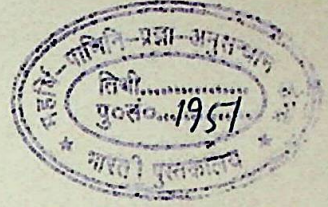 महर्षि-पाणिनि-प्रज्ञा-अनुसन्धान
तिथी..............
पु०सं०....1951
* भारती पुस्तकालय *